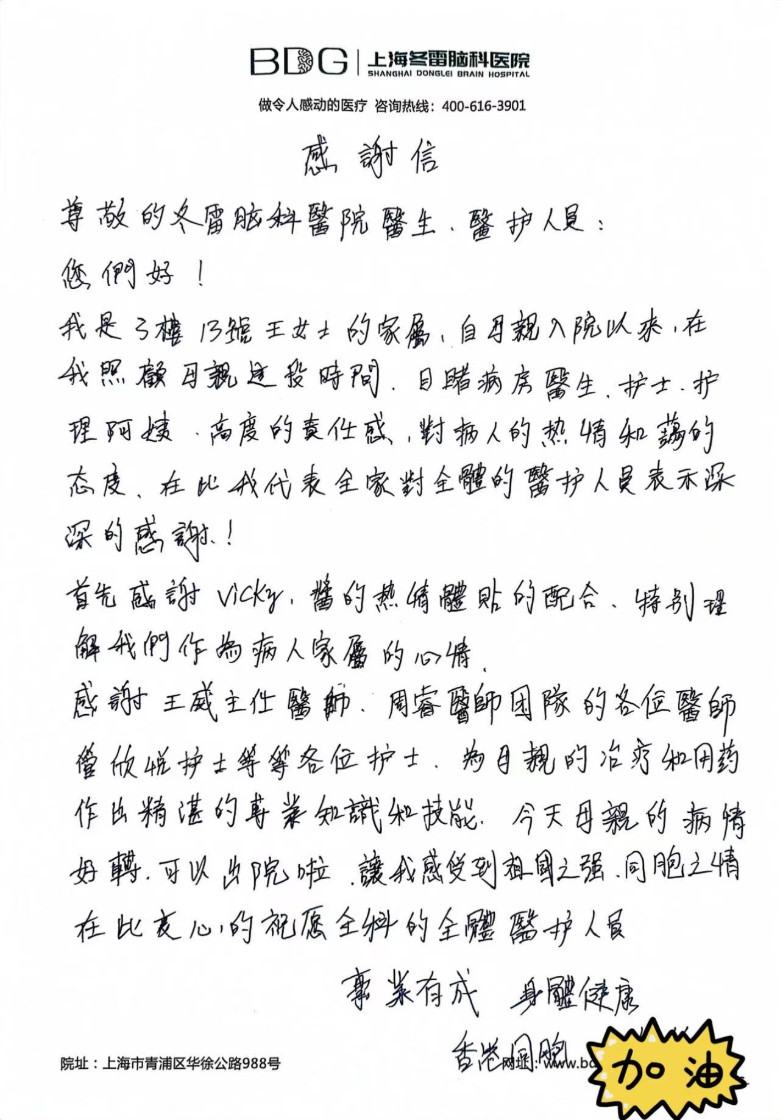 BDG 上海冬雷脑科医院
SHANGHAI DONGLEI BRAIN HOSPITAL
做令人感动的医疗 咨询热线：400-616-3901
感謝信
尊敬的冬雷脑科醫院醫生、醫护人員：
您們好！
我是3樓13號王女士的家屬，自母親入院以來，在
我照顧母親这段時間、目睹病房醫生、护士、护
理阿姨、高度的責任感，對病人的热情和藹的
态度、在此我代表全家對全體的醫护人員表示深
深的感謝！
首先感謝Vicky，醬的热情體貼的配合、特别理
解我們作為病人家屬的心情，
感謝王威主任醫師、周睿醫師团隊的各位醫師
管欣悦护士等等各位护士、為母親的治疗和用药
作出精湛的專業知識和技能、今天母親的病情
好轉、可以出院啦、讓我感受到祖國之强、同胞之情
在此衷心的祝愿全科的全體醫护人員
事業有成 身體健康
香港同胞
院址：上海市青浦区华徐公路988号
网址：www.bd
加油